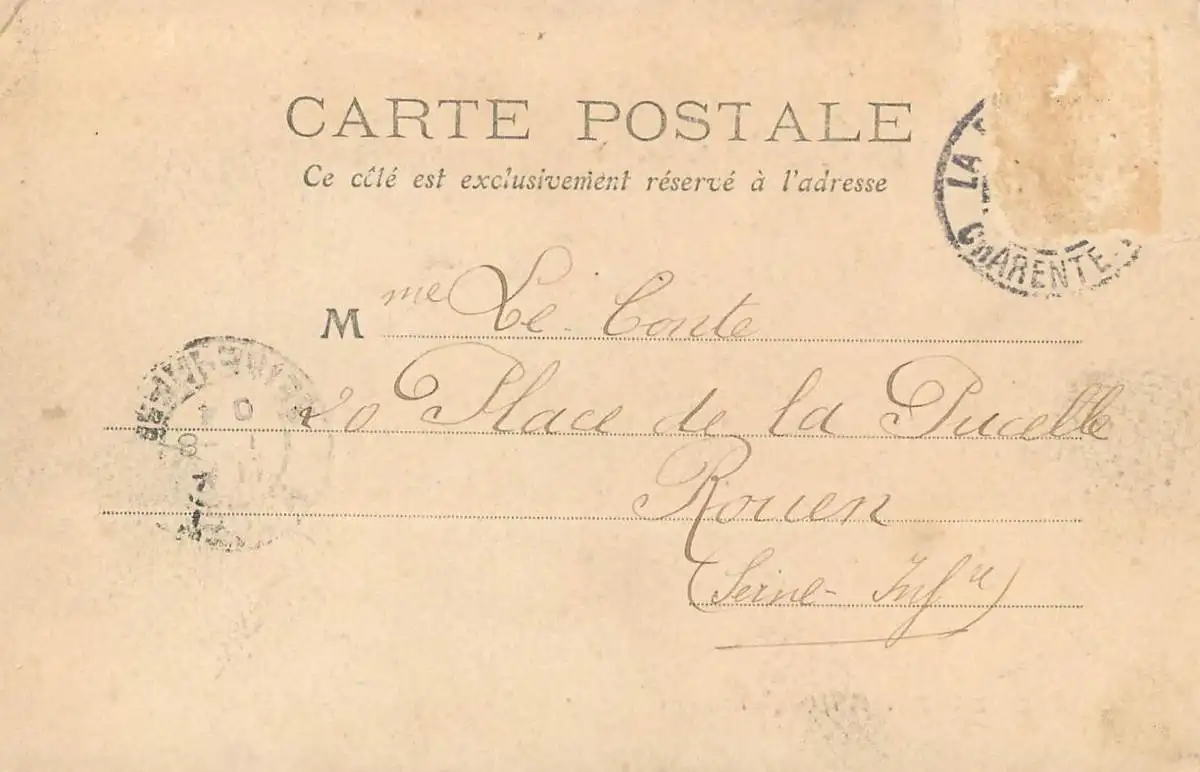 CARTE POSTALE
Ce côté est exclusivement réservé à l'adresse
LA
CHARENTE
Mme Le Conte
20 Place de la Pucelle
Rouen
(Seine-Infre)